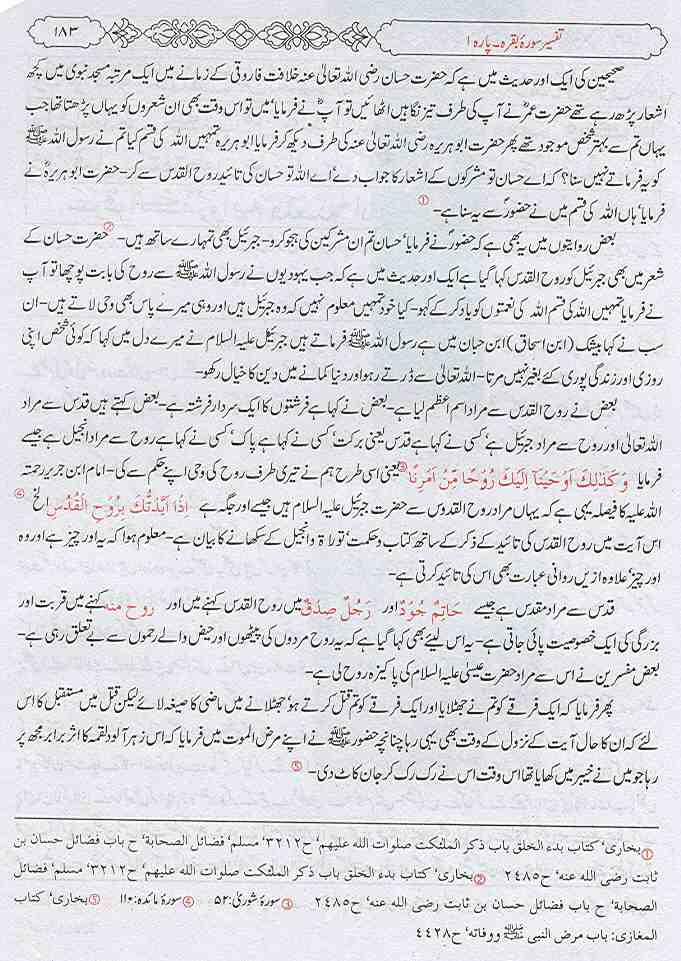 تفسیر سورۂ بقرہ۔ پارہ ۱
۱۸۳
صحیحین کی ایک اور حدیث میں ہے کہ حضرت حسان رضی اللہ تعالیٰ عنہ خلافت فاروقی کے زمانے میں ایک مرتبہ مسجد نبوی میں کچھ
اشعار پڑھ رہے تھے حضرت عمرؓ نے آپ کی طرف تیز نگاہیں اٹھائیں تو آپؓ نے فرمایا' میں تو اس وقت بھی ان شعروں کو یہاں پڑھتا تھا جب
یہاں تم سے بہتر شخص موجود تھے پھر حضرت ابو ہریرہ رضی اللہ تعالیٰ عنہ کی طرف دیکھ کر فرمایا ابو ہریرہ تمہیں اللہ کی قسم کیا تم نے رسول اللہ ﷺ
کو یہ فرماتے نہیں سنا؟ کہ اے حسان تو مشرکوں کے اشعار کا جواب دے' اے اللہ تو حسان کی تائید روح القدس سے کر- حضرت ابو ہریرہؓ نے
فرمایا' ہاں اللہ کی قسم میں نے حضورؐ سے یہ سنا ہے- ①
بعض روایتوں میں یہ بھی ہے کہ حضورؐ نے فرمایا' حسان تم ان مشرکین کی ہجو کرو- جبرئیل بھی تمہارے ساتھ ہیں- ② حضرت حسان کے
شعر میں بھی جبرئیل کو روح القدس کہا گیا ہے ایک اور حدیث میں ہے کہ جب یہودیوں نے رسول اللہ ﷺ سے روح کی بابت پوچھا تو آپ
نے فرمایا تمہیں اللہ کی قسم اللہ کی نعمتوں کو یاد کر کے کہو- کیا خود تمہیں معلوم نہیں کہ وہ جبرئیل ہیں اور وہی میرے پاس بھی وحی لاتے ہیں- ان
سب نے کہا بیشک (ابن اسحاق) ابن حبان میں ہے رسول اللہ ﷺ فرماتے ہیں جبرئیل علیہ السلام نے میرے دل میں کہا کہ کوئی شخص اپنی
روزی اور زندگی پوری کئے بغیر نہیں مرتا- اللہ تعالیٰ سے ڈرتے رہو اور دنیا کمانے میں دین کا خیال رکھو-
بعض نے روح القدس سے مراد اسم اعظم لیا ہے- بعض نے کہا ہے فرشتوں کا ایک سردار فرشتہ ہے- بعض کہتے ہیں قدس سے مراد
اللہ تعالیٰ اور روح سے مراد جبرئیل ہے' کسی نے کہا ہے قدس یعنی برکت' کسی نے کہا ہے پاک' کسی نے کہا ہے روح سے مراد انجیل ہے جیسے
فرمایا وَ كَذٰلِكَ اَوْحَيْنَآ اِلَيْكَ رُوْحًا مِّنْ اَمْرِنَا ③ یعنی اسی طرح ہم نے تیری طرف روح کی وحی اپنے حکم سے کی- امام ابن جریر رحمتہ
اللہ علیہ کا فیصلہ یہی ہے کہ یہاں مراد روح القدوس سے حضرت جبرئیل علیہ السلام ہیں جیسے اور جگہ ہے اِذْ اَيَّدْتُّكَ بِرُوْحِ الْقُدُسِ الخ ④
اس آیت میں روح القدس کی تائید کے ذکر کے ساتھ کتاب و حکمت' توراۃ و انجیل کے سکھانے کا بیان ہے- معلوم ہوا کہ یہ اور چیز ہے اور وہ
اور چیز' علاوہ ازیں روانی عبارت بھی اس کی تائید کرتی ہے-
قدس سے مراد مقدس ہے جیسے حَاتِمُ جُوْدٍ اور رَجُلُ صِدْقٍ میں روح القدس کہنے میں اور روح منہ کہنے میں قربت اور
بزرگی کی ایک خصوصیت پائی جاتی ہے- یہ اس لیے بھی کہا گیا ہے کہ یہ روح مردوں کی پیٹھوں اور حیض والے رحموں سے بے تعلق رہی ہے-
بعض مفسرین نے اس سے مراد حضرت عیسیٰ علیہ السلام کی پاکیزہ روح لی ہے-
پھر فرمایا کہ ایک فرقے کو تم نے جھٹلایا اور ایک فرقے کو تم قتل کرتے ہو' جھٹلانے میں ماضی کا صیغہ لائے لیکن قتل میں مستقبل کا اس
لئے کہ ان کا حال آیت کے نزول کے وقت بھی یہی رہا چنانچہ حضور ﷺ نے اپنے مرض الموت میں فرمایا کہ اس زہر آلود لقمہ کا اثر برابر مجھ پر
رہا جو میں نے خیبر میں کھایا تھا اس وقت اس نے رک رک کر جان کاٹ دی- ⑤
① بخاری' کتاب بدء الخلق باب ذکر الملئکت صلوات اللہ علیہم' ح۳۲۱۲' مسلم' فضائل الصحابة' ح باب فضائل حسان بن
ثابت رضی اللہ عنہ' ح۲۴۸۵ ② بخاری' کتاب بدء الخلق باب ذکر الملئکت صلوات اللہ علیہم' ح۳۲۱۲' مسلم' فضائل
الصحابة' ح باب فضائل حسان بن ثابت رضی اللہ عنہ' ح۲۴۸۵ ③ سورۂ شوریٰ:۵۲ ④ سورۂ مائدہ:۱۱۰ ⑤ بخاری' کتاب
المغازی: باب مرض النبی ﷺ ووفاته' ح۴۴۲۸